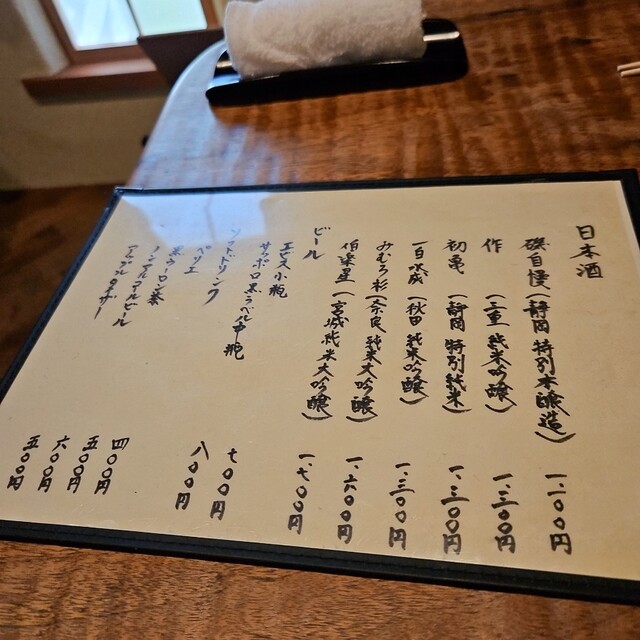 日本酒
磯自慢(静岡 特別本醸造) 一、一〇〇円
作 (三重 純米吟醸) 一、三〇〇円
初亀 (静岡 特別純米) 一、三〇〇円
一白水成 (秋田 純米吟醸) 一、三〇〇円
みむろ杉(奈良 純米大吟醸) 一、六〇〇円
伯楽星(宮城 純米大吟醸) 一、七〇〇円
ビール
エビス小瓶 七〇〇円
サッポロ黒ラベル中瓶 八〇〇円
ソフトドリンク
ペリエ 四〇〇円
黒ウーロン茶 五〇〇円
ノンアルコールビール 六〇〇円
アップルタイザー 五〇〇円